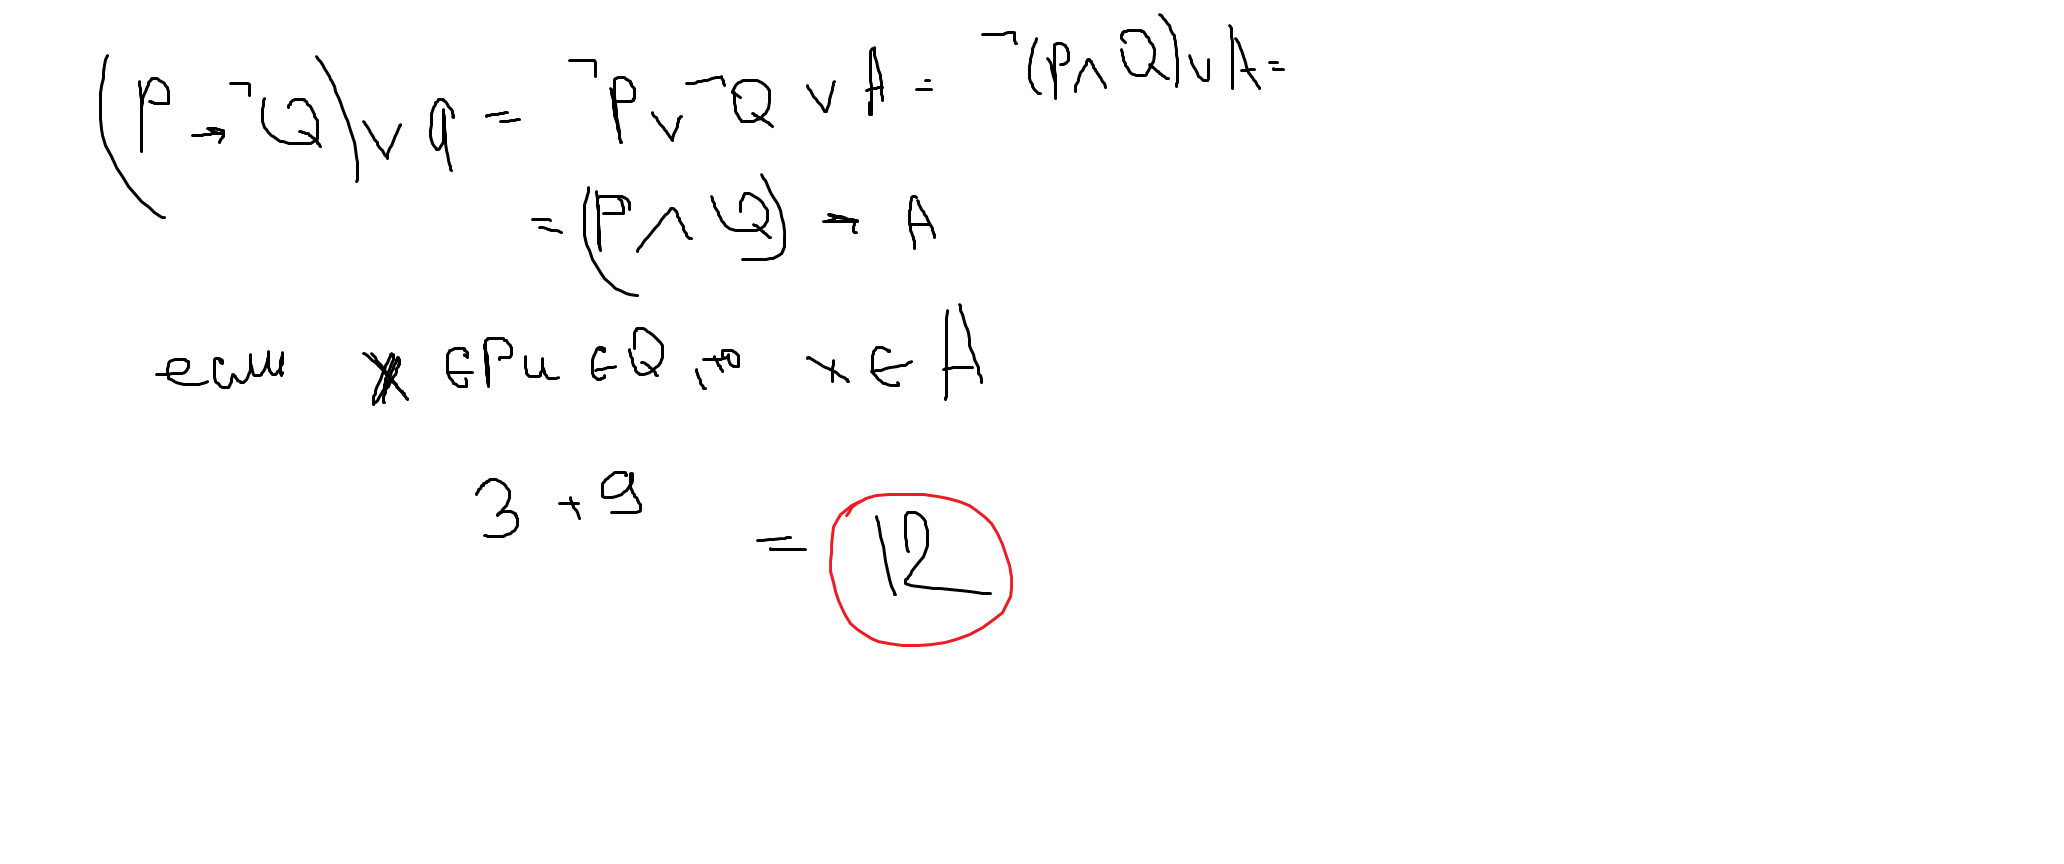 (P → ¬Q) ∨ q = ¬P ∨ ¬Q ∨ A = ¬(P ∧ Q) ∨ A =
= (P ∧ Q) → A
если x ∈ P и ∈ Q, то x ∈ A
3 + 9 = 12